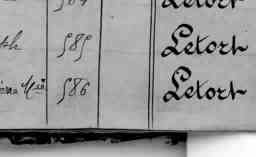 584 Letort
th 585 Letort
586 Letort